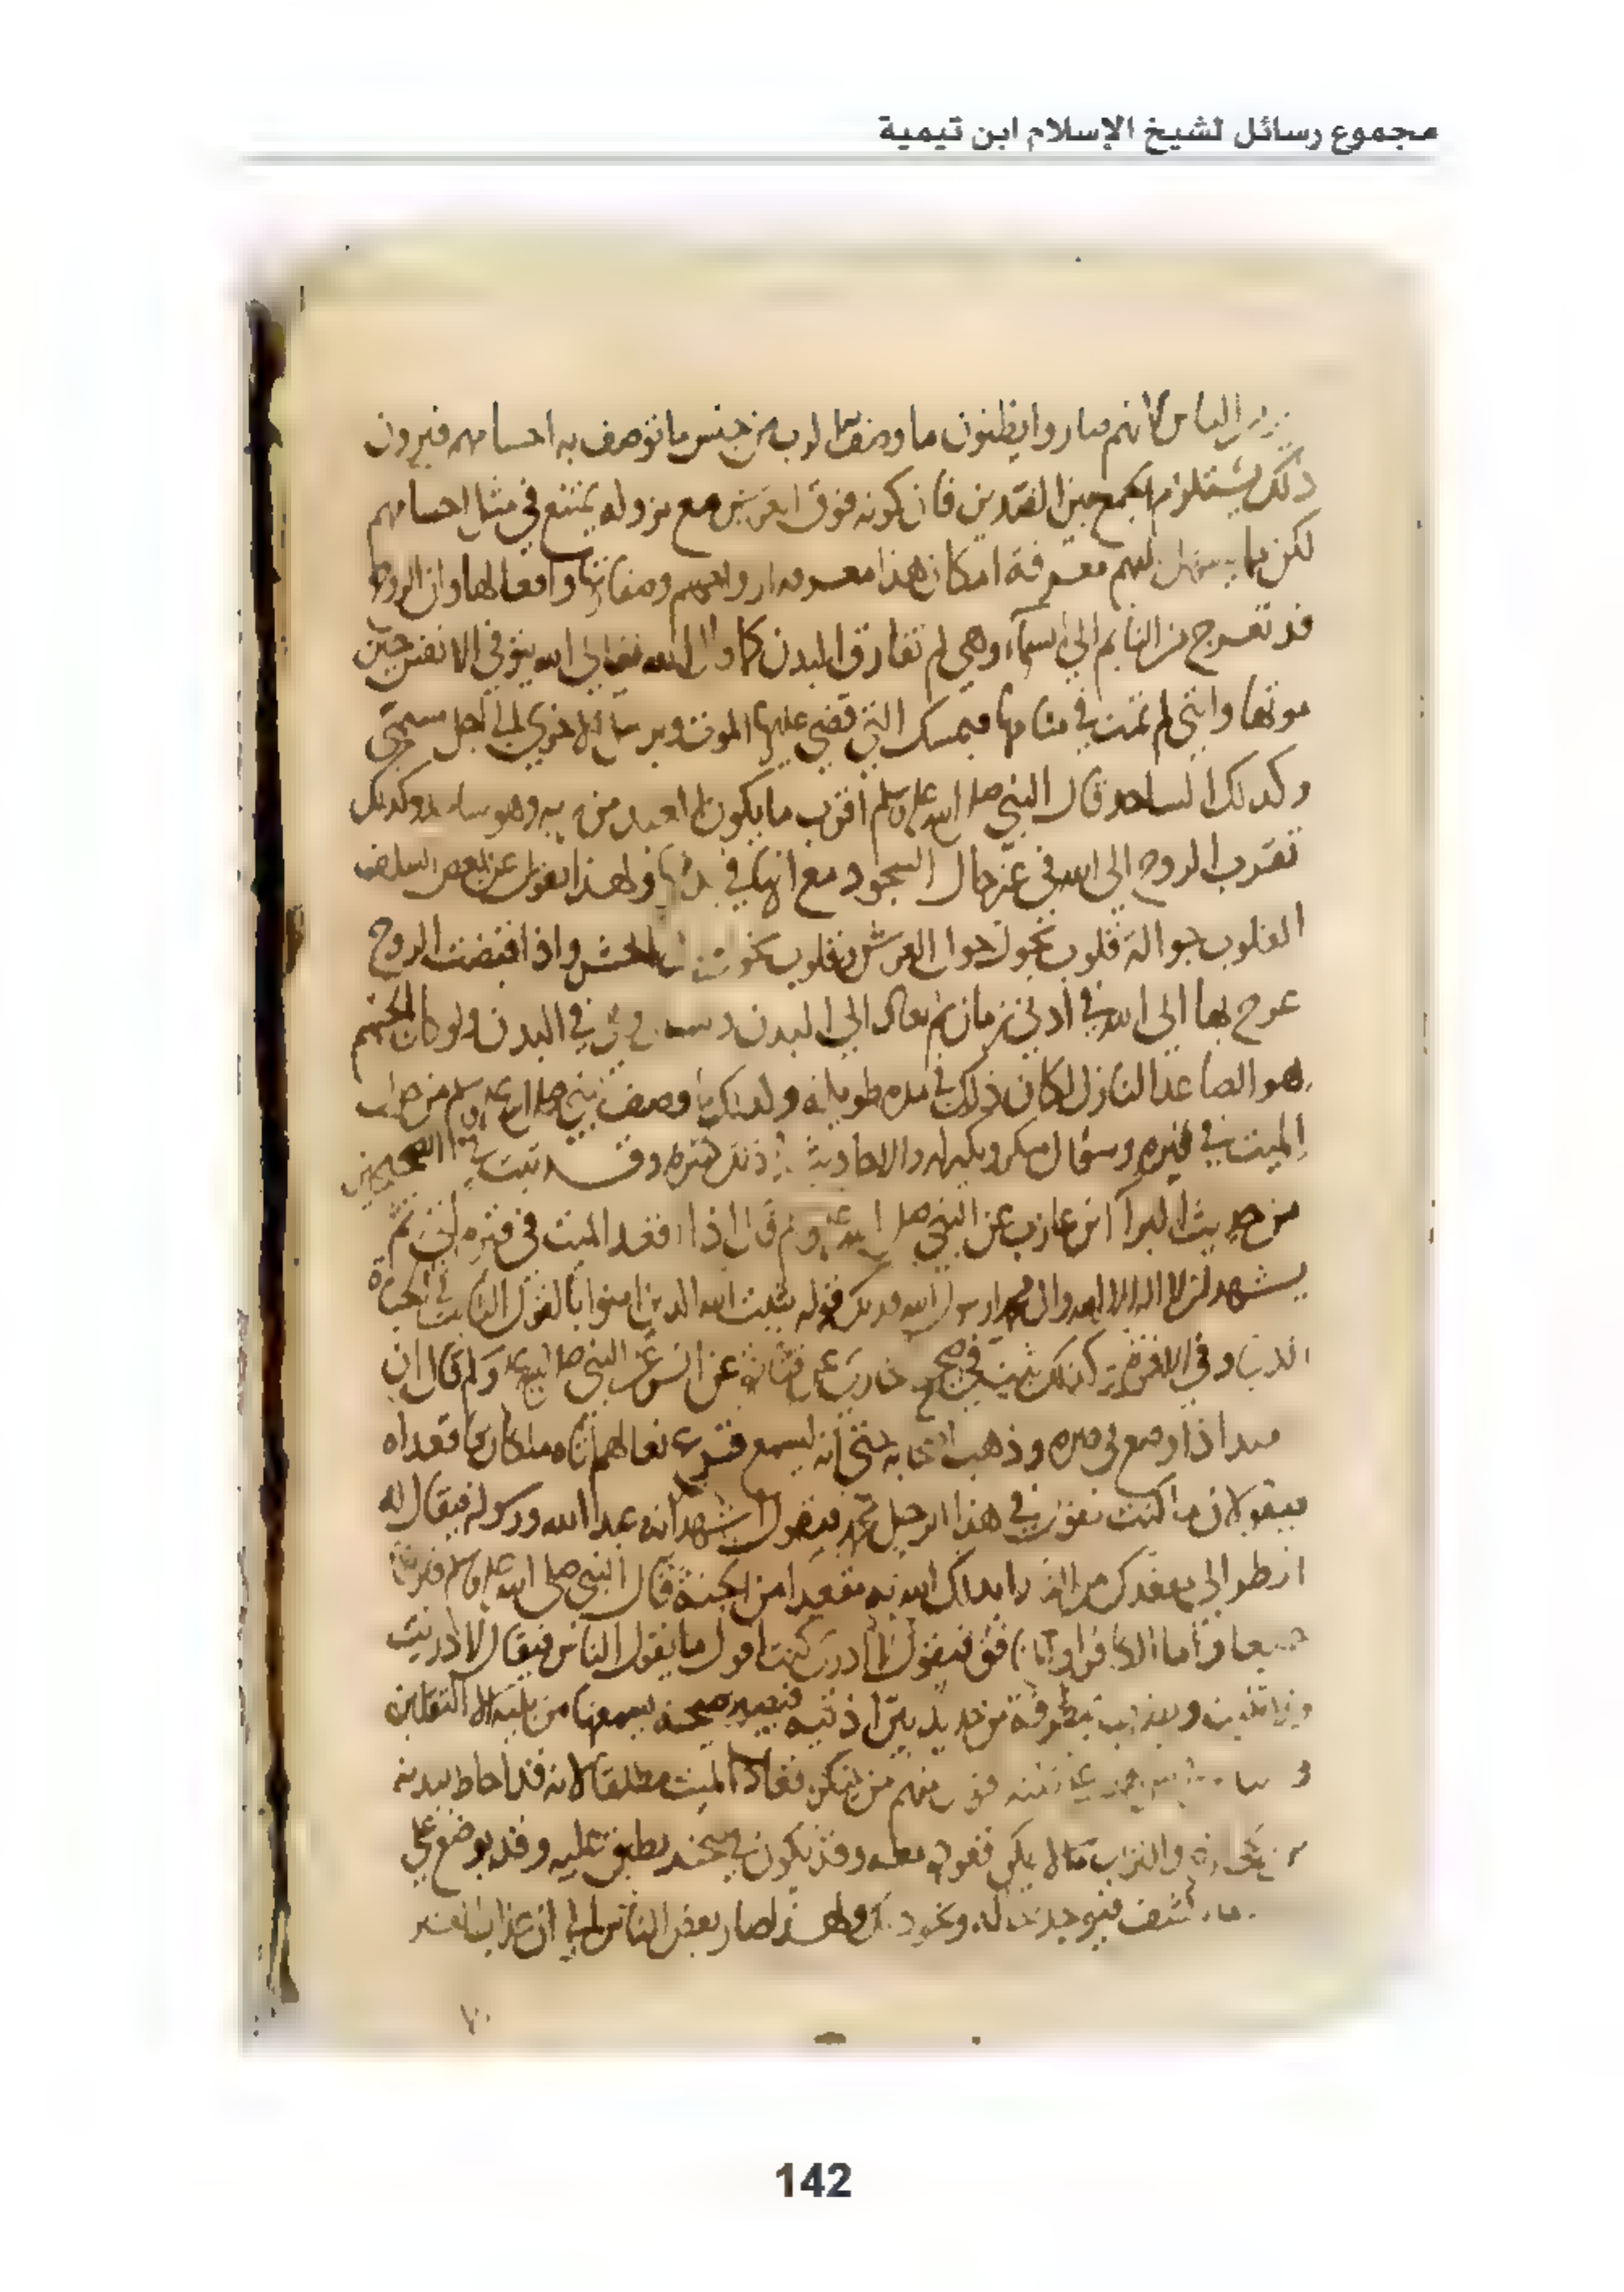 مجموع رسائل لشيخ الإسلام ابن تيمية
الناس لانهم صاروا يظنون ما وصف الرب من جنس ما توصف به اجسامهم فيرون
ذلك يستلزم الجمع بين الضدين فان كونه فوق العرش مع نزوله يمتنع في مثل اجسامهم
لكن مما يسهل لهم معرفة امكان هذا معرفة ارواحهم وصفاتها وافعالها وان الروح
قد تعرج من النايم الى السمآء وهي لم تفارق البدن كما قال الله تعالى الله يتوفى الانفس حين
موتها والتي لم تمت في منامها فيمسك التي قضى عليها الموت ويرسل الاخرى الى اجل مسمى
وكذلك الساجد قال النبي صلى الله عليه وسلم اقرب ما يكون العبد من ربه وهو ساجد وكذلك
تقرب الروح الى الله في غير حال السجود مع انها في بدنها ولهذا يقول بعض السلف
القلوب جوالة قلوب تجول حول العرش وقلوب تجول الحش واذا قبضت الروح
عرج بها الى الله في ادنى زمان ثم تعاد الى البدن وهي في البدن ولو كان الجسم
هو الصاعد النازل لكان ذلك في مدة طويلة وكذلك ما وصف النبي صلى الله عليه وسلم من حال
الميت في قبره وسؤال منكر ونكير له والاحاديث في ذلك كثيرة وقد ثبت في الصحيحين
من حديث البرآ ابن عازب عن النبي صلى الله عليه وسلم قال اذا اقعد الميت في قبره اتي ثم
يشهد ان لا اله الا الله وان محمدا رسول الله فذلك قوله يثبت الله الذين امنوا بالقول الثابت في الحياة
الدنيا وفي الاخرة وكذلك ثبت في صحيح عن قتادة عن انس عن النبي صلى الله عليه وسلم قال ان
العبد اذا وضع في قبره وذهب اصحابه حتى انه ليسمع قرع نعالهم اتاه ملكان فاقعداه
فيقولان ما كنت تقول في هذا الرجل محمد فيقول اشهد انه عبد الله ورسوله فيقال له
انظر الى مقعدك من النار ابدلك الله به مقعدا من الجنة قال النبي صلى الله عليه وسلم فيراهما
جميعا واما الكافر او المنافق فيقول لا ادري كنت اقول ما يقول الناس فيقال لا دريت
ولا تليت ويضرب بمطرقة من حديد بين اذنيه فيصيح صيحة يسمعها من يليه الا الثقلين
من ينكر اقعاد الميت مطلقا لانه قد احاط ببدنه
من الحجارة والتراب ما لا يمكن قعوده معه وقد يكون في صخر يطبق عليه وقد يوضع على
يكشف فيوجد بحاله ونحو ذلك ولهذا صار بعض الناس الى ان عذاب القبر
٧٠
142